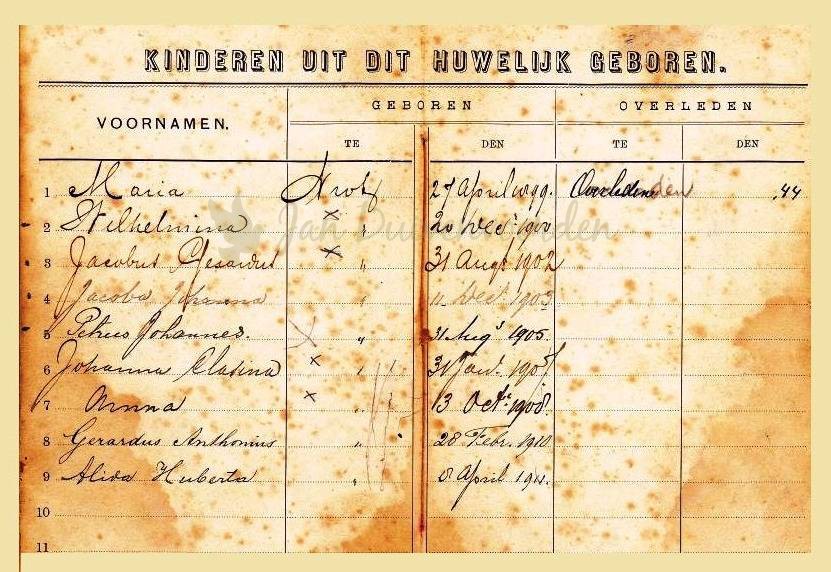 KINDEREN UIT DIT HUWELIJK GEBOREN.
VOORNAMEN. GEBOREN OVERLEDEN
TE DEN TE DEN
1 Maria 27 April 1899. Overleden .44
2 Wilhelmina " 20 Dec. 1900
3 Jacobus Gerardus " 31 Augs 1902
4 Jacoba Johanna " 11 Dec. 1903
5 Petrus Johannes. " 31 Augs 1905.
6 Johanna Clasina " 31 Janu. 1907
7 Anna " 13 Octr. 1908.
8 Gerardus Anthonius " 28 Febr. 1910
9 Alida Huberta " 8 April 1911.
10
11